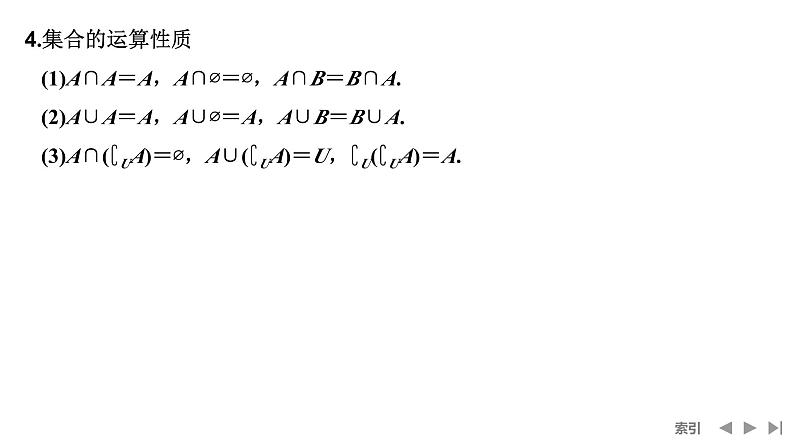 4.集合的运算性质
(1)A∩A＝A，A∩∅＝∅，A∩B＝B∩A.
(2)A∪A＝A，A∪∅＝A，A∪B＝B∪A.
(3)A∩(∁UA)＝∅，A∪(∁UA)＝U，∁U(∁UA)＝A.
索引